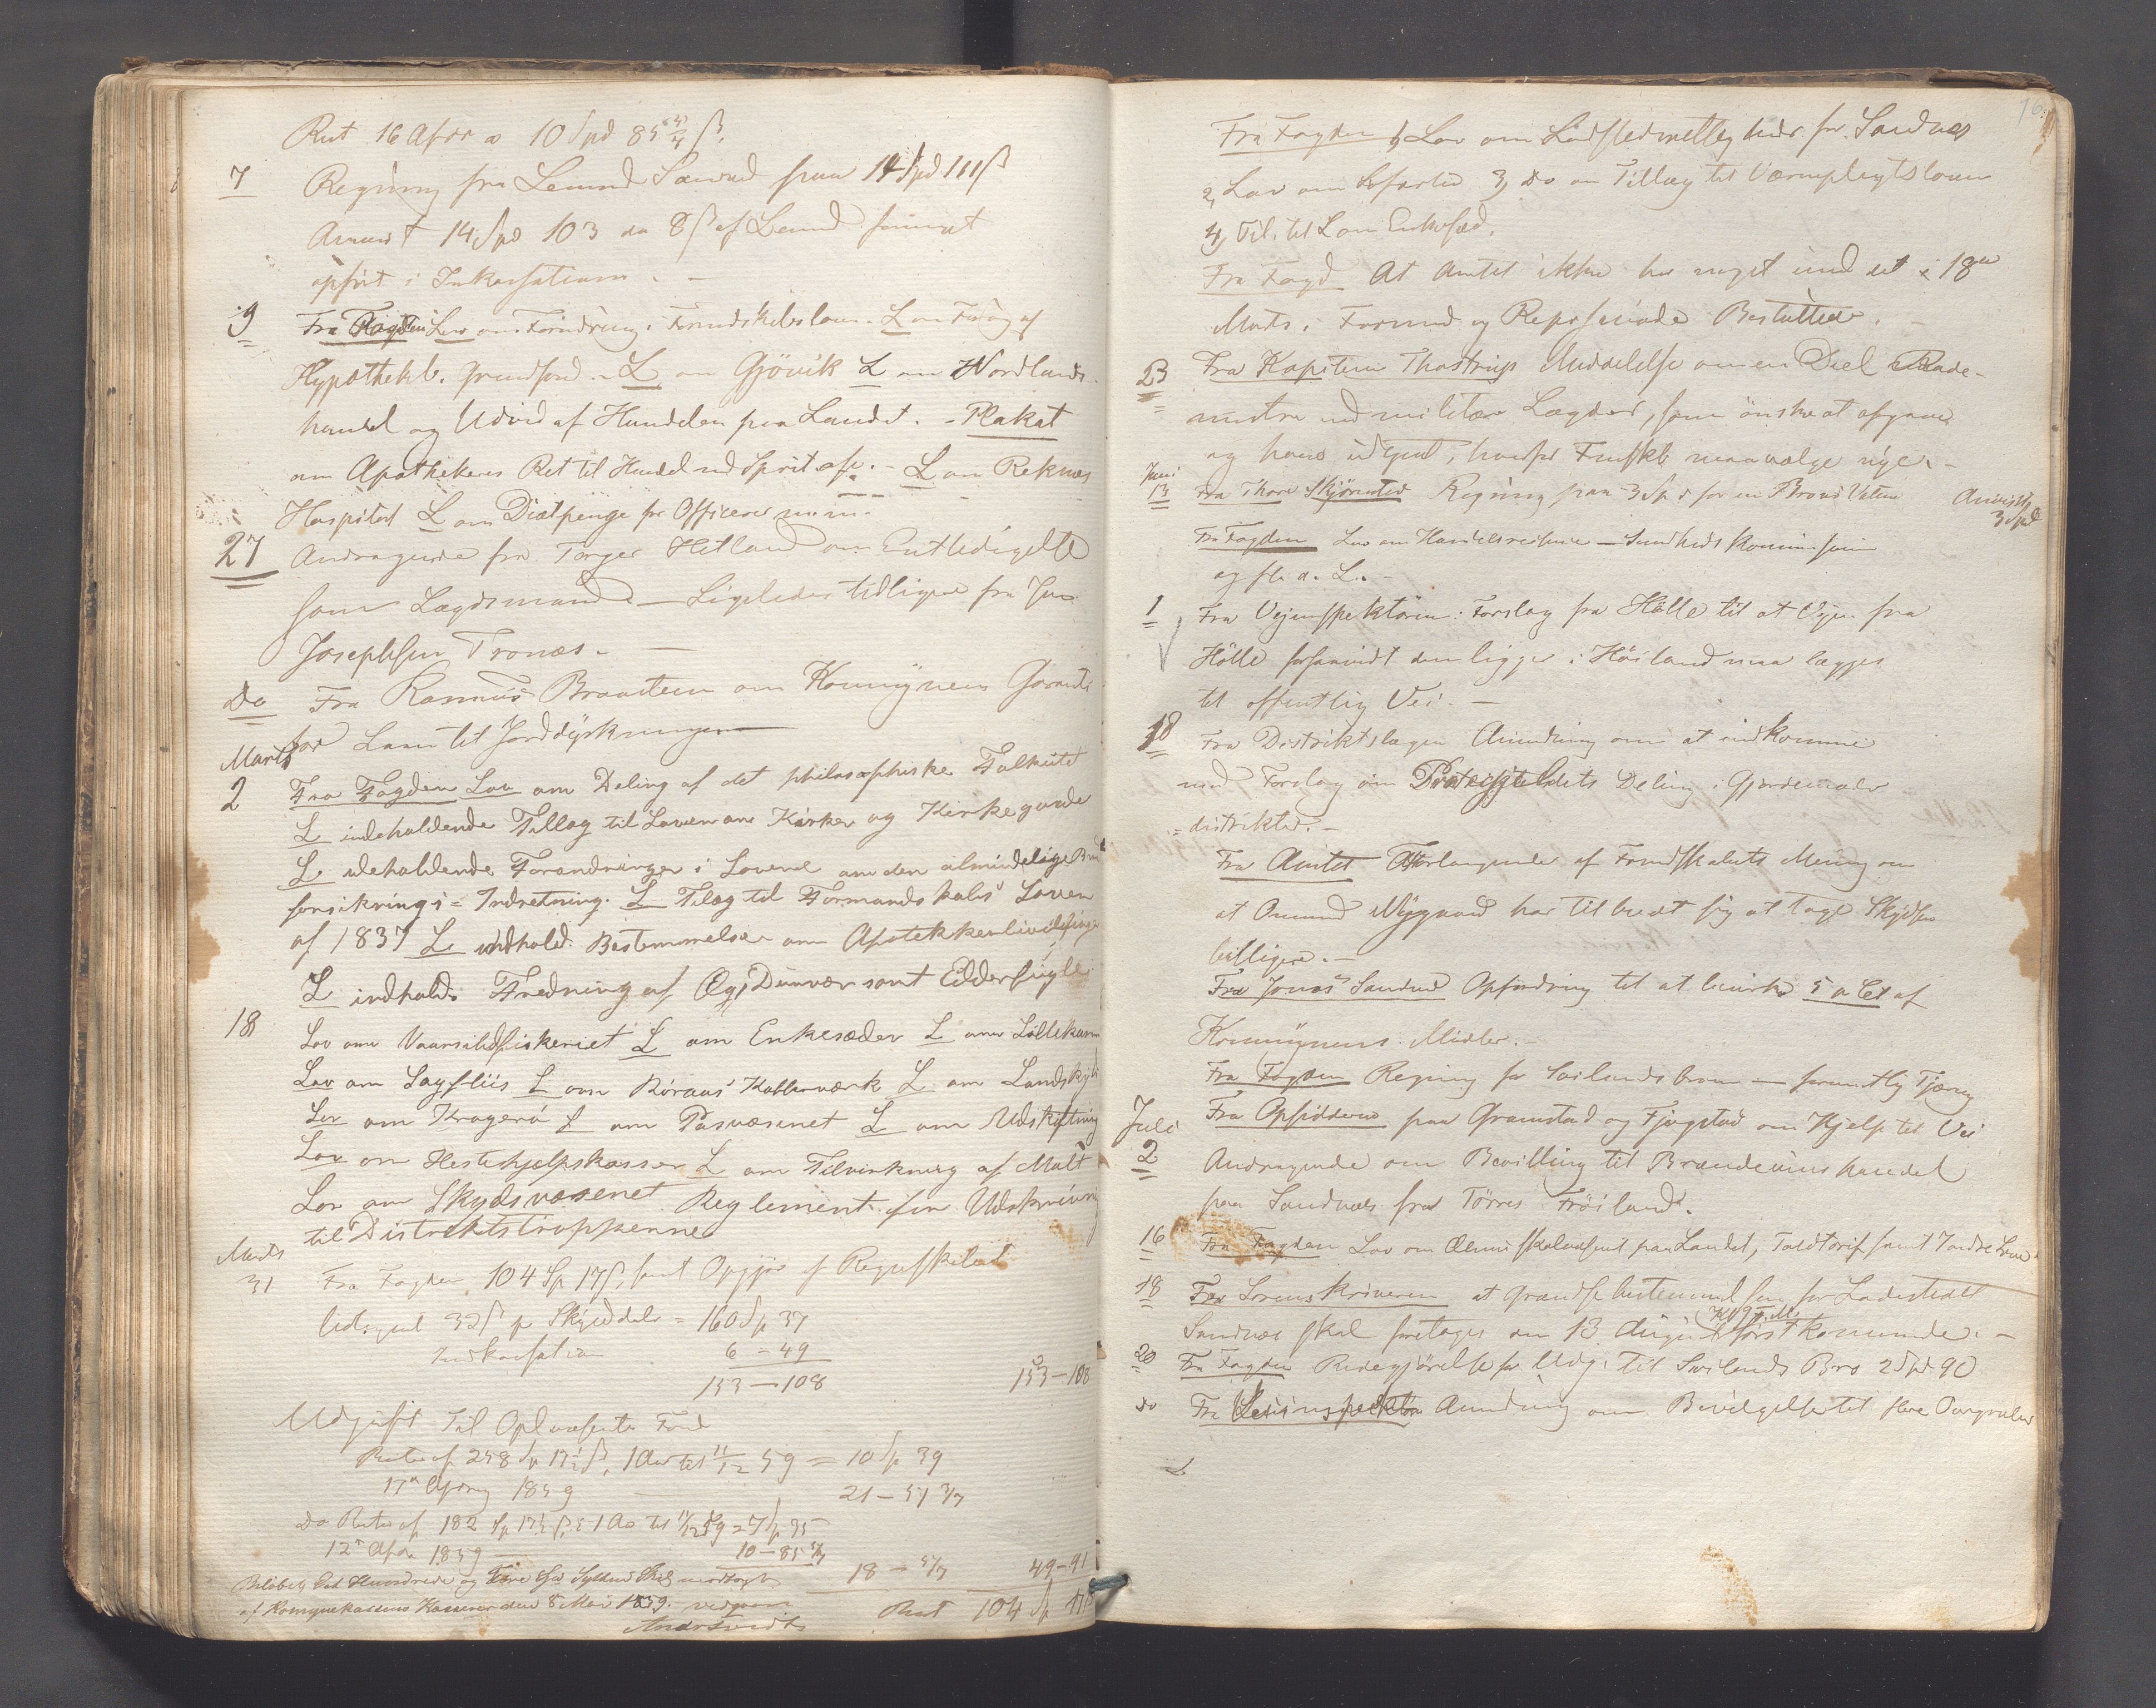 Rest 16 Afdr a 10 Spd 85 4/4 ß.
7 Regning fra Lensmd Sanved paa 14 Spd 111 ß
Anvist 14 Spd 103 da 8 ß af Lensmd
opført i Inkassationen. —
9 Fra Fogden Lov om Forandring i Formdskbsloven. L om Forøg af
Hypothekb. Grundfond. - L om Gjövik L om Nordlands-
handel og Udvid af Handelen paa Landet. - Plakat
om Apothekeres Ret til Handel med Sprit osv. - L om Reknæs
Hospital L om Diætpenge for Officerer m.m.
27 Andragende fra Torger Hetland om Entledigelse
som Lægdsmand — Ligeledes tidligere fra Jon
Josephsen Tronæs. —
do Fra Rasmus Braastein om Kommunens Garanti
for Laan til Jorddyrkningen
Marts
2 Fra Fogden Lov om Deling af det philosophiske Fakultet
L indeholdende Tillæg til Loven om Kirker og Kirkegaarde
L indeholdende Forandringer i Lovene om den almindelige Brand
forsikrings = Indretning. L Tilæg til Formandskabs Loven
af 1837 L indhold. Bestemmelser om Apotekker
L indhold. Fredning af Æg, Dunvær samt Edderfugle
18 Lov om Vaarsildfiskeriet L om Enkesæder L om Lillehamm
Lov om Sagfliis L om Röraas Kobberværk L om Landskyld
Lov om Kragerö L om Pasvæsenet L om Udskiftning
Lov om Hestehjelpskasser L om Tilvirkning af Malt
Lov om Skydsvæsenet Reglement for Udskrivning
til Distriktstroppenne
Marts
31 Fra Fogden 104 Sp 17 ß, samt Opgjør af Regnskabet
Udlignet 32 ß pr Skylddaler = 160 Sp 37
Inkassation 6 - 49
153 — 108 153 - 108
Udgift Til Oplysnings Fond
Rente af 258 Sp 17½ ß, 1 Aar til 11/12 59 = 10 Sp 39
17de Afdrag 1859 21 - 51 3/7
do Rente af 182 Sp 17½ ß, 1 Aar til 11/12 59 = 7 Sp 35
12te Afdr 1859 10 - 85 5/7
18 - 5/7 49 - 91
Beløbet Et Hundrede og Fire Spd Sytten Skil modtaget Rest 104 Sp 17 ß
af Komunekassens Kasserer den 8 Mai 1859.
Fra Fogden 1, Lov om Ladstedrettigheder for Sandnæs
2, Lov om 3, do om Tillæg til Værnepligtsloven
4, Til. til L om Enkesæd.
Fra Fogd At Amtet ikke har noget imod det i 18de
Møds. i Formd og Repræsentsk Besluttede. —
23 Fra Kapitein Thostrup Meddelelse om en Deel Rode-
mestre ved militær Lægder, som önsker at afgaae
og have udtjent, hvorfor Formskb maa vælge nye. —
Juni
13 Fra Thore Skjørestad Regning paa 3 Spd for en Anvist
3 Spd
Fra Fogden Lov om Handels — Sundhedskommission
og fl. a. L. —
1 Fra Veiinspektøren. Forslag fra Hölle til at Veien fra
Hölle forsaavidt den ligger i Höiland maa lægges
til offentlig Vei. —
18 Fra Distriktslægen Anmodning om at indkomme
med Forslag om Præstegjeldets Deling i Gjordemoder
= distrikter. —
Fra Amtet Forlangende af Formdskabets Mening om
at Omund Nygaard har tilbudt sig at tage Skydsen
billigere. —
Fra Jonas Sandved Opfordring til at bevirke af
Kommunens Midler. —
Fra Fogden Regning for Soilandsbroen —
Juli Fra Opsidderne paa Gramstad og Fjogstad om Hjelp til Vei
2 Andragende om Bevilling til Brændeviinshandel
paa Sandnæs fra Törres Fröiland.
16 Fra Fogden Lov om Almueskolevæsenet paa Landet, Toldtarif samt
18 Fra Sorenskriveren at Grændsebestemmelsen for Ladestedet
Kl 9 Fmd
Sandnæs skal foretages den 13 August först kommende. —
20 Fra Fogden Redegjörelse for Udg. til Soilands Bro 2 Spd 90
do Fra Veiinspektør Anmodning om Bevilgelse til flere